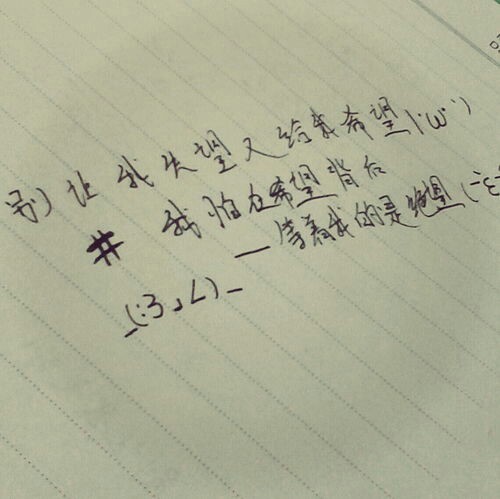 别让我失望又给我希望(·ω·)
# 我怕在希望背后
一等着我的是绝望(-ε-
_(:3」∠)_